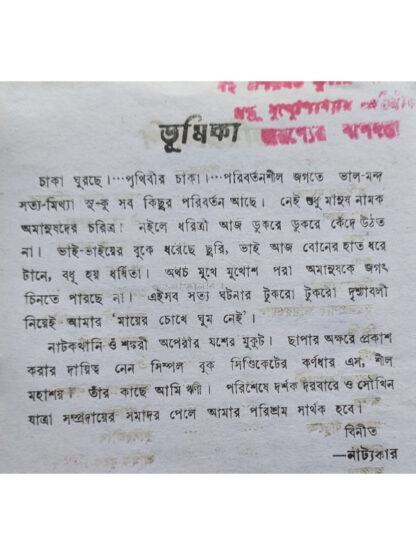 ভূমিকা
চাকা ঘুরছে।···পৃথিবীর চাকা।···পরিবর্তনশীল জগতে ভাল-মন্দ
সত্য-মিথ্যা সু-কু সব কিছুর পরিবর্তন আছে। নেই শুধু মানুষ নামক
অমানুষদের চরিত্র। নইলে ধরিত্রী আজ ডুকরে ডুকরে কেঁদে উঠত
না। ভাই-ভাইয়ের বুকে ধরেছে ছুরি, ভাই আজ বোনের হাত ধরে
টানে, বধূ হয় ধর্ষিতা। অথচ মুখে মুখোশ পরা অমানুষকে জগৎ
চিনতে পারছে না। এইসব সত্য ঘটনার টুকরো টুকরো দৃশ্যাবলী
নিয়েই আমার ‘মায়ের চোখে ঘুম নেই’।
নাটকখানি ওঁ শঙ্করী অপেরার যশের মুকুট। ছাপার অক্ষরে প্রকাশ
করার দায়িত্ব নেন সিম্পল বুক সিণ্ডিকেটের কর্ণধার এস, শীল
মহাশয়। তাঁর কাছে আমি ঋণী। পরিশেষে দর্শক দরবারে ও সৌখিন
যাত্রা সম্প্রদায়ের সমাদর পেলে আমার পরিশ্রম সার্থক হবে।
বিনীত
—নাট্যকার